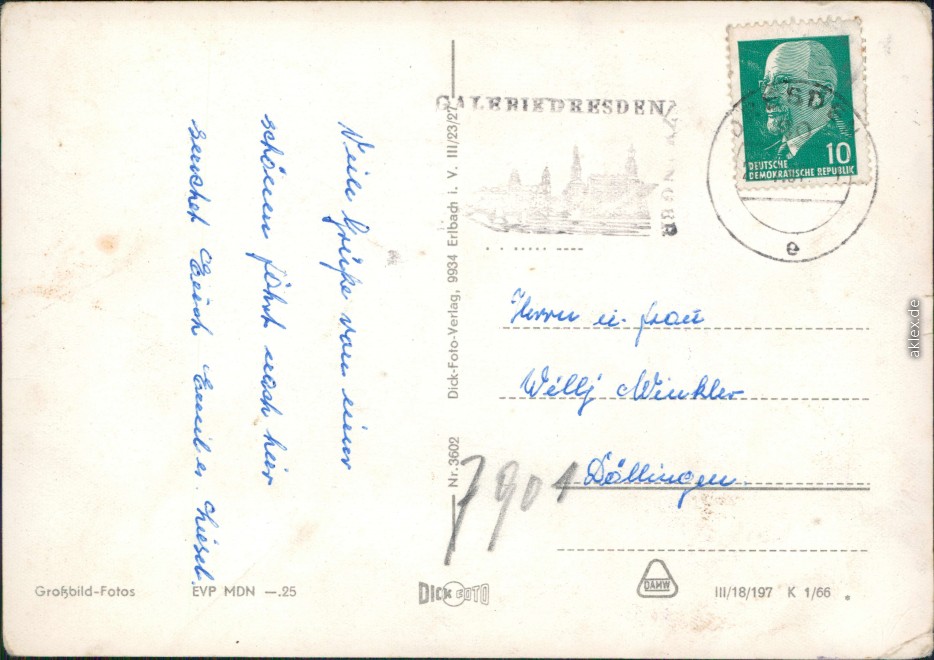 Viele Grüße von einer
schönen Fahrt nach hier
sendet Euch Emil u. Liesel.
Großbild-Fotos
EVP MDN —.25
Nr. 3602
Dick-Foto-Verlag, 9934 Erlbach i. V. III/23/27
DICK FOTO
GALERIE DRESDEN
DRESDEN
e
10
DEUTSCHE
DEMOKRATISCHE REPUBLIK
Herrn u. Frau
Willy Winkler
7901 Döllingen
DAMW
III/18/197 K 1/66
aklex.de